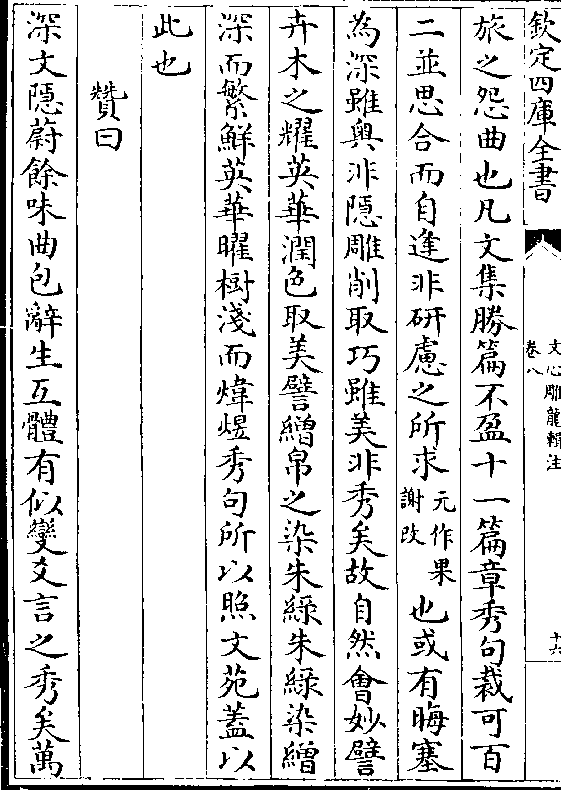 欽定四庫全書
文心雕龍輯注
卷八
十六
旅之怨曲也凡文集勝篇不盈十一篇章秀句裁可百
二並思合而自逢非研慮之所求元作果謝改也或有晦塞
為深雖奥非隱雕削取巧雖美非秀矣故自然會妙譬
卉木之耀英華潤色取美譬繒帛之染朱綠朱綠染繒
深而繁鮮英華曜樹淺而煒煜秀句所以照文苑蓋以
此也
贊曰
深文隱蔚餘味曲包辭生互體有似變爻言之秀矣萬